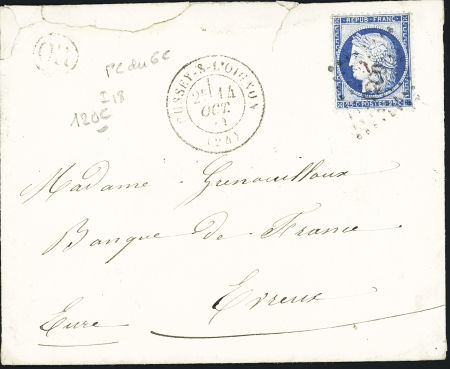 OR
PC du GC
I18
120€
CUSSEY-S-L'OIGNON
2E 14
OCT.
(24)
REPUB. FRANC.
25 C. POSTES 25 C.
Madame Grenouilloux
Banque de France
Evreux
Eure